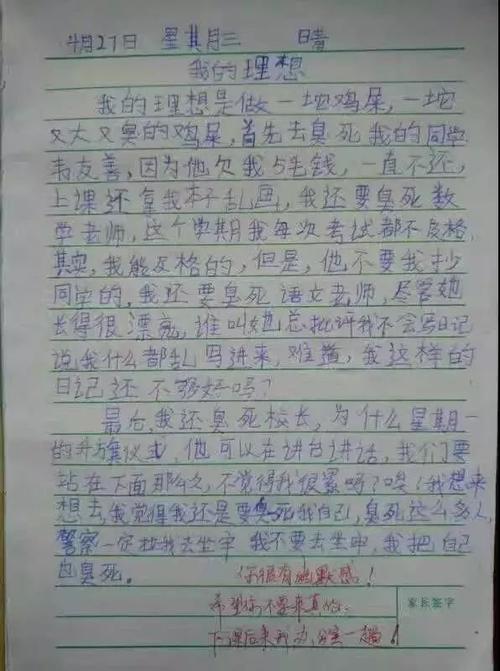 4月27日 星其月三 晴
我的理想
我的理想是做一坨鸡屎,一坨
又大又臭的鸡屎,首先去臭死我的同学
韦友善,因为他欠我5毛钱,一直不还,
上课还拿我本子乱画,我还要臭死数
学老师,这个学期我每次考试都不及格,
其实,我能及格的,但是,他不要我抄
同学的,我还要臭死语文老师,尽管她
长得很漂亮,谁叫她总批评我不会写日记
说我什么都乱写进来,难道,我这样的
日记还不够好吗?
最后,我还臭死校长,为什么星期一
的升旗仪式,他可以在讲台讲话,我们要
站在下面那么久,不觉得我很累吗?唉!我想来
想去,我觉得我还是要臭死我自己,臭死这么多人,
警察一定拉我去坐牢 我不要去坐牢,我把自己
也臭死。 你很有幽默感!
希望你不要来真的。
下课后来我办公室一趟!
家长签字